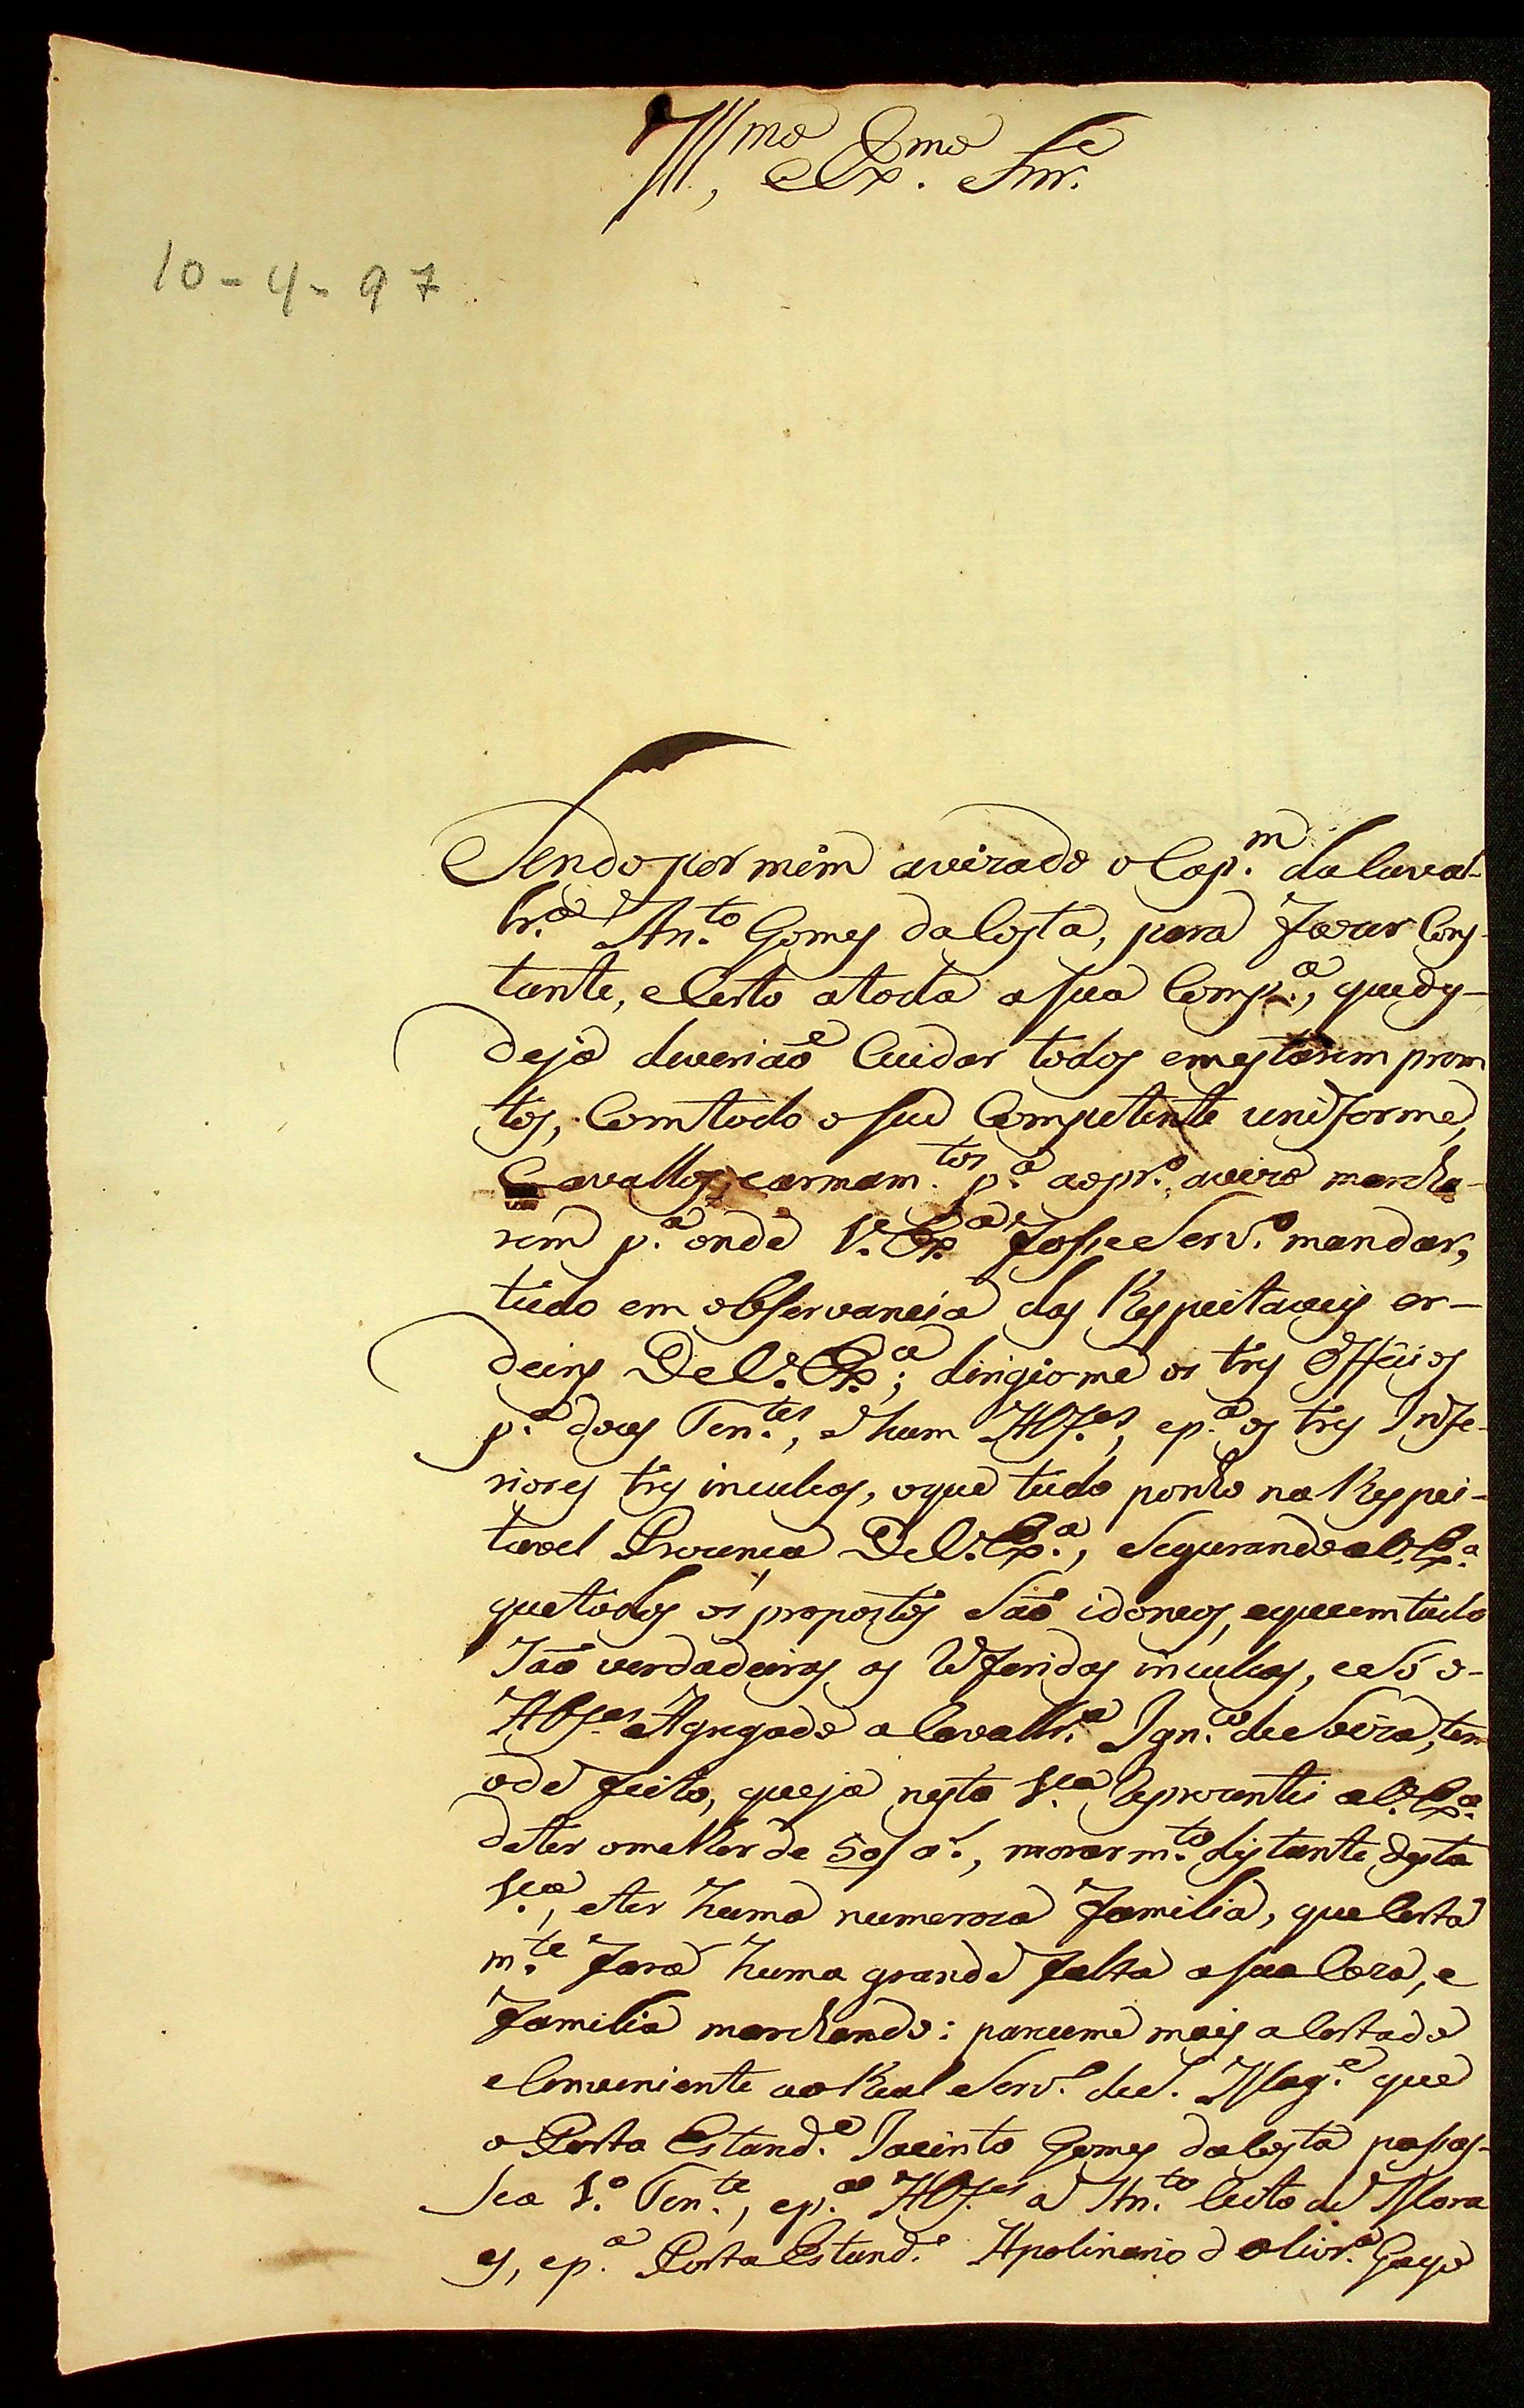 Illmo, Exmo. Snr.
10-4-97
Sendo por mim avizado o Cap.m da Caval-
lr.a An.to Gomes da Costa, para fazer Cons-
tante, e Certo a toda a sua Comp.a, que des-
de já deveriaõ Cuidar todos em estarem prom
tos, Com todo o seu Competente uniforme,
Cavallos, e armam.tos p.a ao pr.o avizo marcha-
rem p.a onde V. Ex.a fosse Serv.o mandar,
tudo em observancia das Respeitaveis or-
deins De V. Ex.a; dirigiome os tres Officios
p.a dous Ten.tes, e hum Alf.es, e p.a os tres Infe-
riores tres inculcas, o que tudo ponho na Respei-
tavel Prezença De V. Ex.a, Segurando a V. Ex.a
que todos os propostos Saõ idoneos, e que em tudo
Saõ verdadeiras as Referidas inculcas, e Só o
Alf.es Agregado a Cavallr.a Ign.o de Seixa, tem
o de feito, que já nesta V.a Reprezentei a V. Ex.a
de ter o melhor de 50 a.s, morar m.to distante desta
V.a, e ter huma numeroza familia, que Certa
m.te fará huma grande falta a sua Caza, e
familia marchando: pareceme mais aCertado
e Conveniente ao Real Serv.o de S. Mag.e que
o Porta Estand.e Jacinto Gomes da Costa passas-
se a 1.o Ten.te, e p.a Alf.es a An.to Leite de Mora
es, e p.a Porta Estand.e Apolinario de Olivr.a Gago